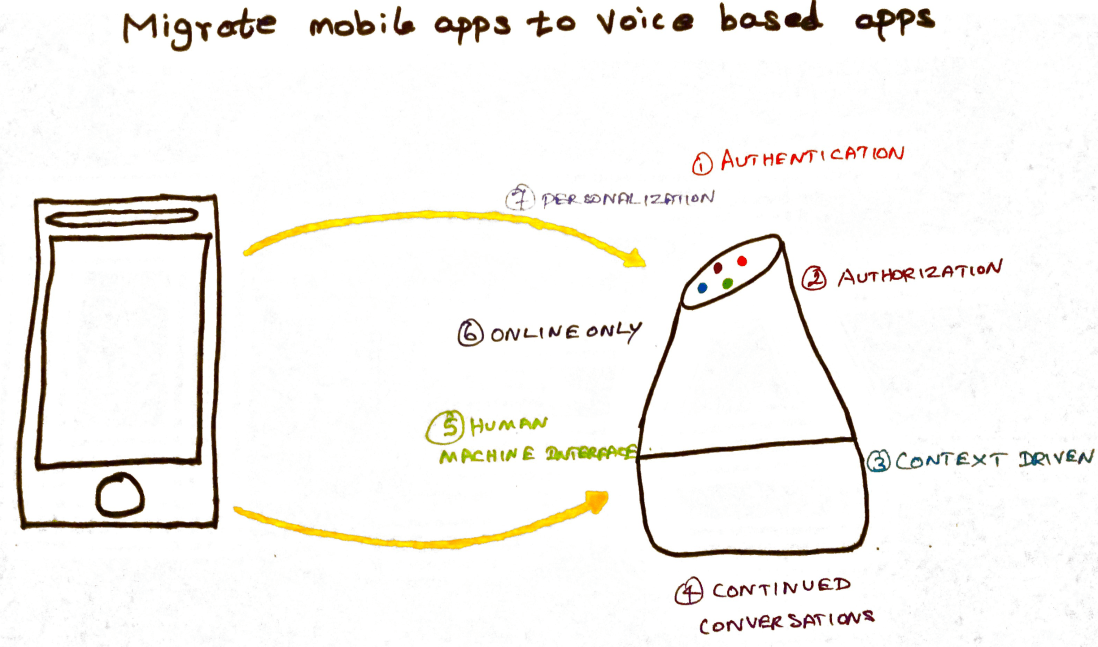 Migrate mobile apps to Voice based apps
① AUTHENTICATION
② AUTHORIZATION
③ CONTEXT DRIVEN
④ CONTINUED
CONVERSATIONS
⑤ HUMAN
MACHINE INTERFACE
⑥ ONLINE ONLY
⑦ PERSONALIZATIION